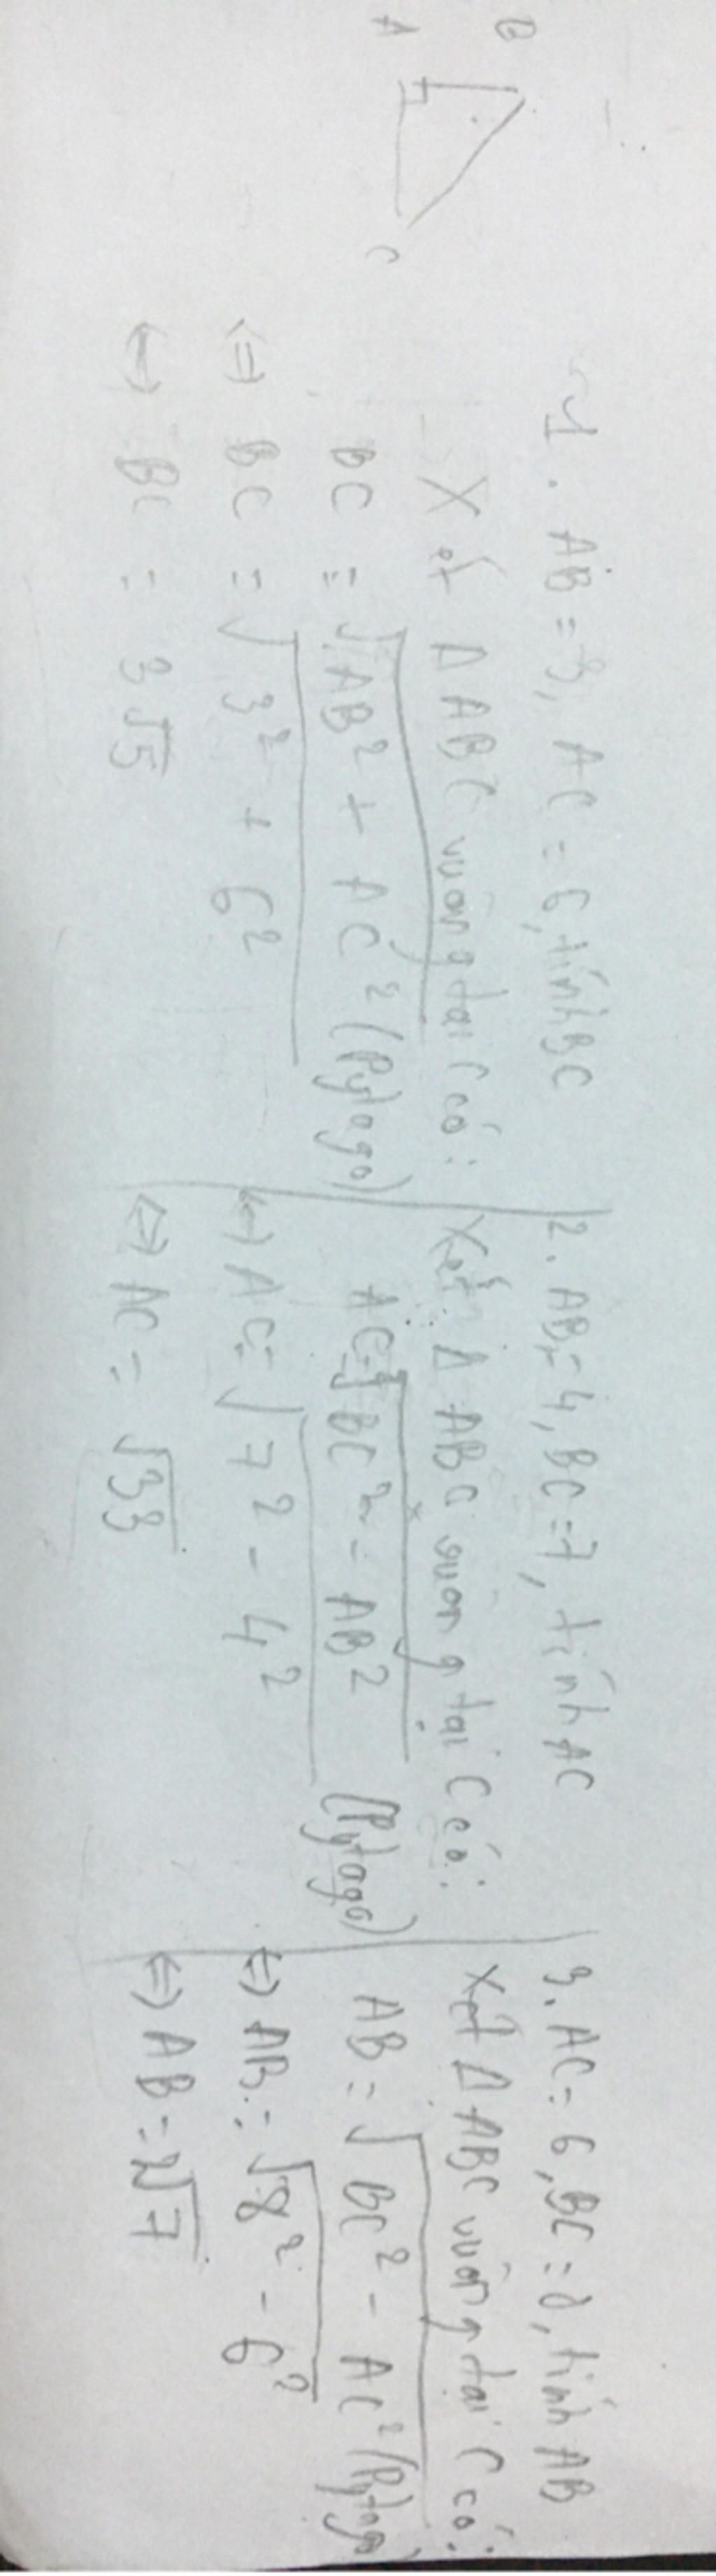 B
A
C
1. AB = 3, AC = 6, tính BC
Xét Δ ABC vuông tại C có:
BC = √AB² + AC² (Pytago)
<=> BC = √3² + 6²
<=> BC = 3√5
2. AB = 4, BC = 7, tính AC
Xét Δ ABC vuông tại C có:
AC = √BC² - AB² (Pytago)
<=> AC = √7² - 4²
<=> AC = √33
3. AC = 6, BC = 8, tính AB
Xét Δ ABC vuông tại C có:
AB = √BC² - AC² (Pytago)
<=> AB = √8² - 6²
<=> AB = 2√7